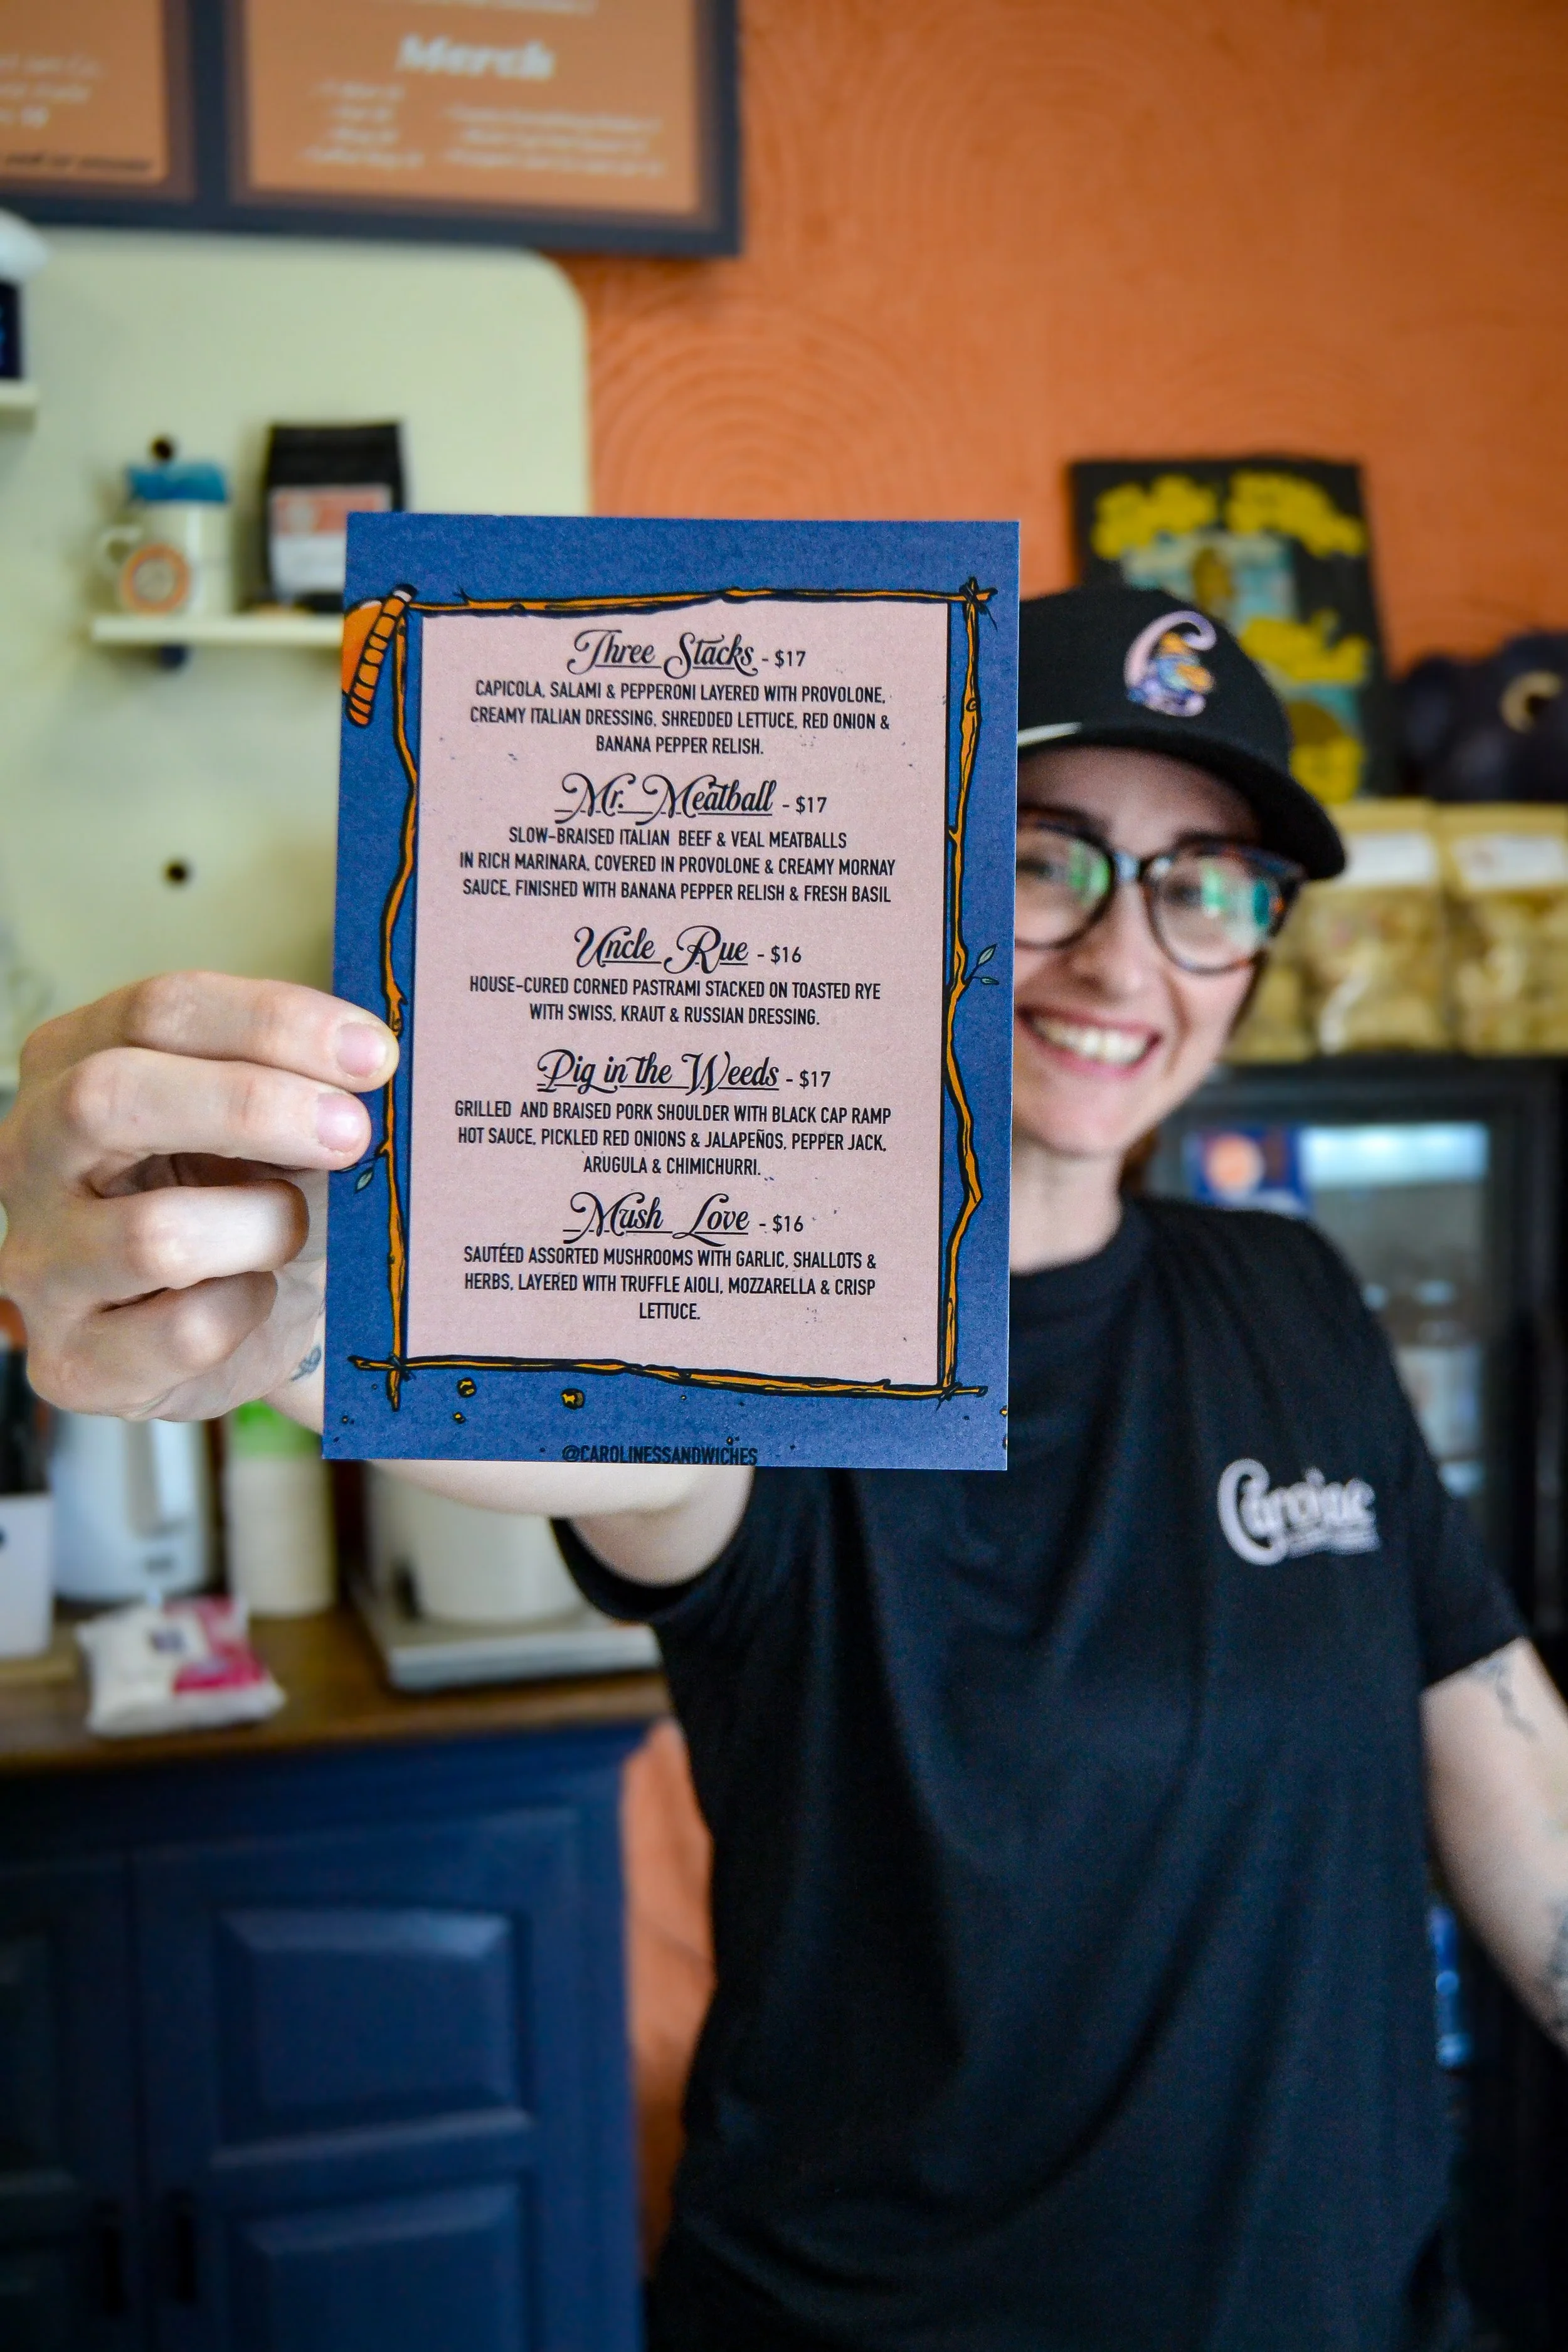 Merch
Three Stacks - $17
CAPICOLA, SALAMI & PEPPERONI LAYERED WITH PROVOLONE,
CREAMY ITALIAN DRESSING, SHREDDED LETTUCE, RED ONION &
BANANA PEPPER RELISH.
Mr. Meatball - $17
SLOW-BRAISED ITALIAN BEEF & VEAL MEATBALLS
IN RICH MARINARA, COVERED IN PROVOLONE & CREAMY MORNAY
SAUCE, FINISHED WITH BANANA PEPPER RELISH & FRESH BASIL
Uncle Rue - $16
HOUSE-CURED CORNED PASTRAMI STACKED ON TOASTED RYE
WITH SWISS, KRAUT & RUSSIAN DRESSING.
Pig in the Weeds - $17
GRILLED AND BRAISED PORK SHOULDER WITH BLACK CAP RAMP
HOT SAUCE, PICKLED RED ONIONS & JALAPEÑOS, PEPPER JACK,
ARUGULA & CHIMICHURRI.
Mush Love - $16
SAUTÉED ASSORTED MUSHROOMS WITH GARLIC, SHALLOTS &
HERBS, LAYERED WITH TRUFFLE AIOLI, MOZZARELLA & CRISP
LETTUCE.
@CAROLINESSANDWICHES
C
Caroline